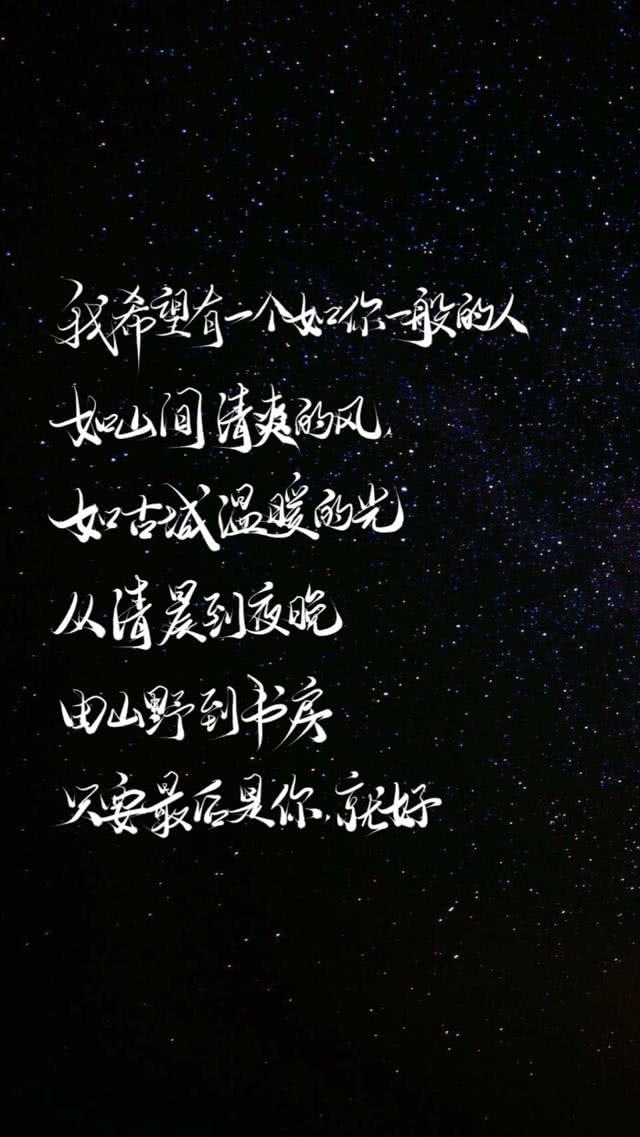 我希望有一个如你一般的人
如山间清爽的风,
如古城温暖的光
从清晨到夜晚
由山野到书房
只要最后是你,就好